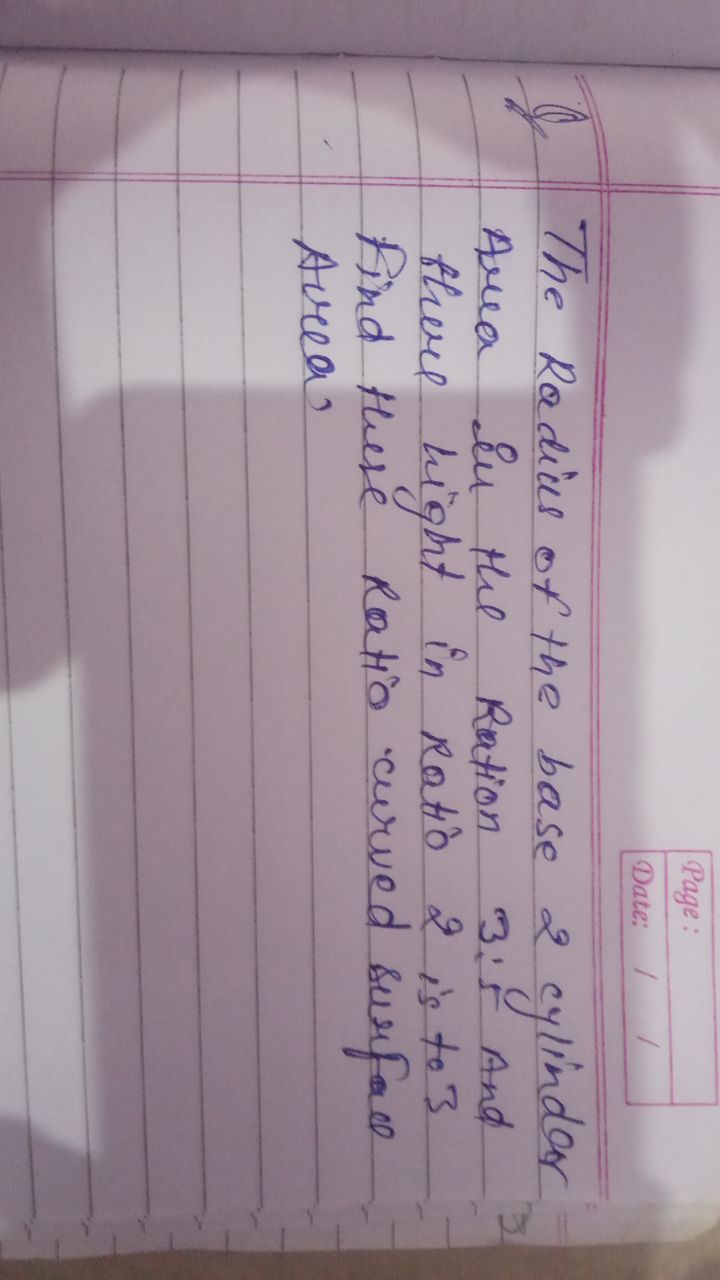 Page:
Date: / /
Q The Radius of the base 2 cylinder
Area In the Ration 3:5 And
there hight in Ratio 2 is to 3
Find these Ratio curved surface
Area